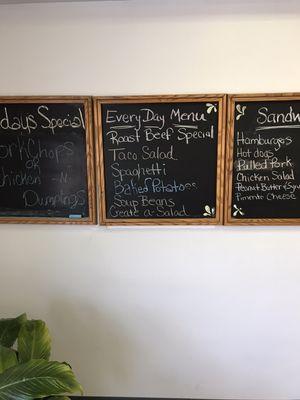 days Special
ork Chops
or
hicken - N
Dumplings
Every Day Menu
Roast Beef Special
Taco Salad
Spaghetti
Baked Potatoes
Soup Beans
Create-a-Salad
Sandw
Hamburgers
Hot dogs
Pulled Pork
Chicken Salad
Peanut Butter & Syru
Pimento Cheese